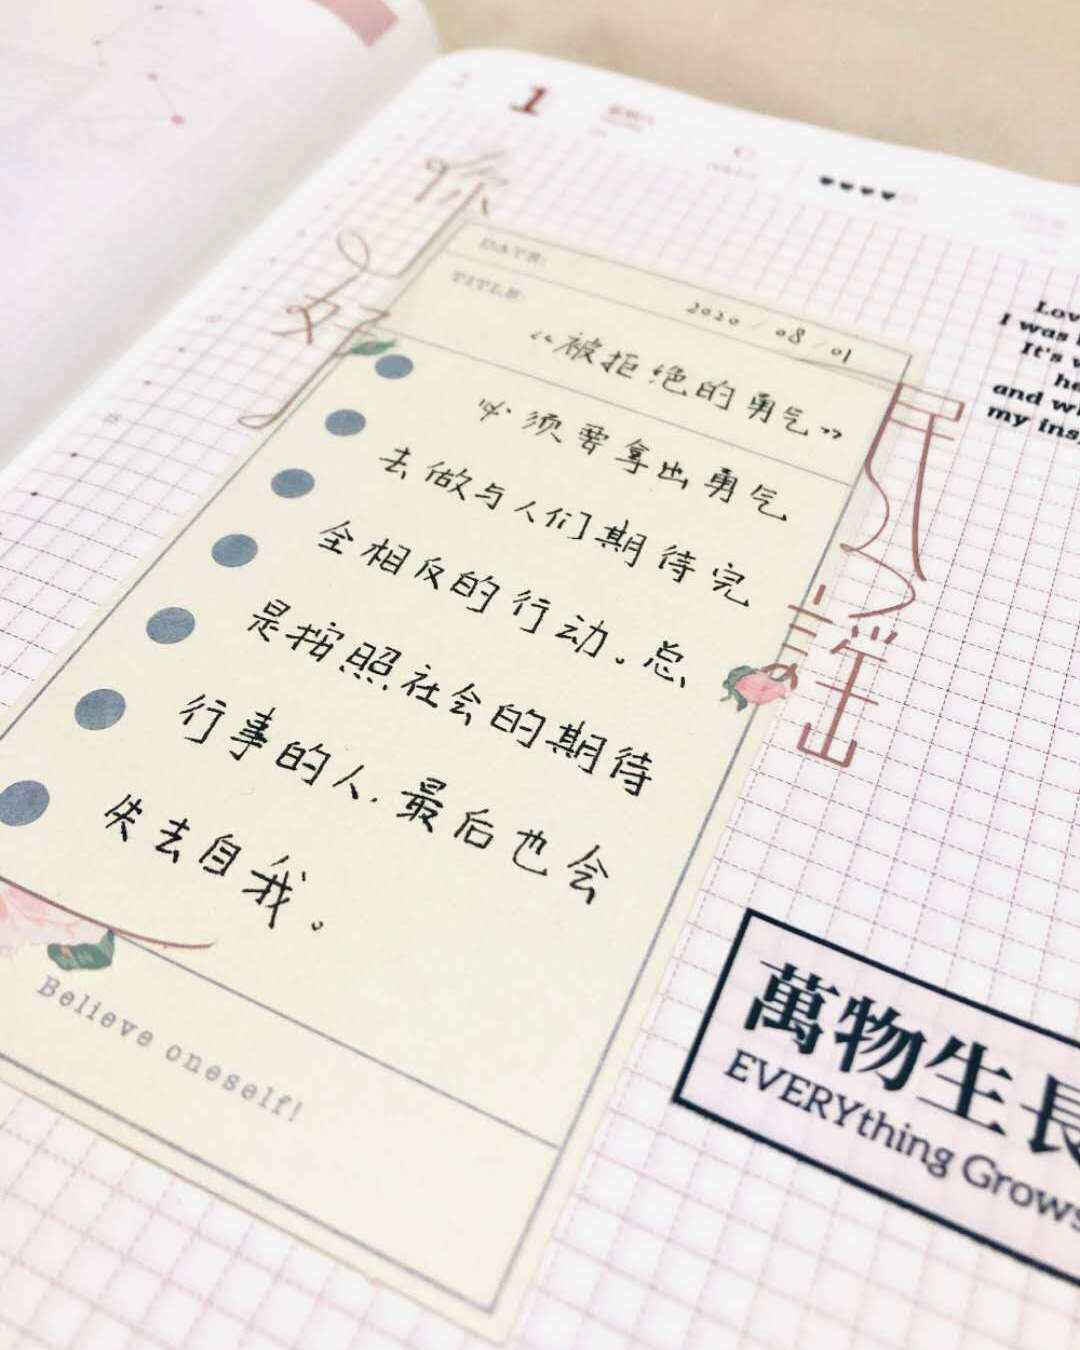 1
你好
DATE:
2020/08/01
TITLE:
“被拒绝的勇气”
必须要拿出勇气
去做与人们期待完
全相反的行动。总
是按照社会的期待
行事的人.最后也会
失去自我。
Believe oneself!
萬物生長
EVERYthing Grows
Lov
I was
It's
he
and wh
my ins